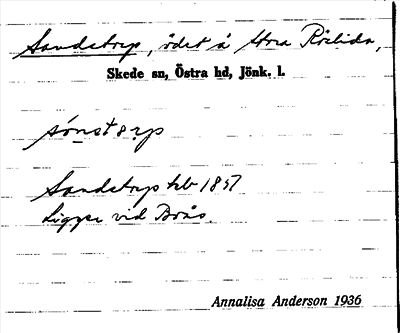 Sandstorp, ödet å Stora Röslida,
Skede sn, Östra hd, Jönk. l.
Sandstorp hlr 1857
Ligger vid Brås.
Annalisa Anderson 1936